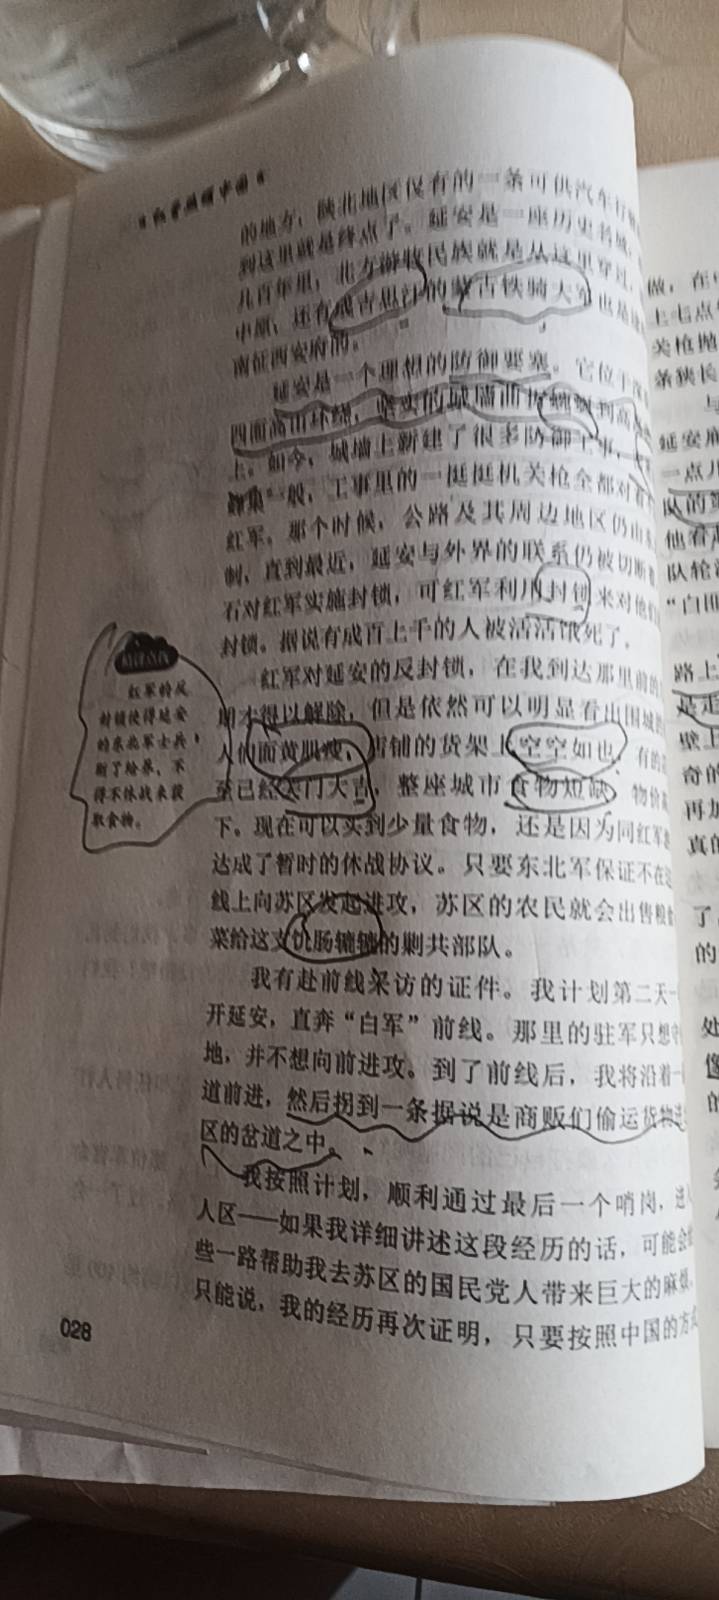 红星照耀中国
的地方，陕北地区仅有的一条可供汽车行
到这里就是终点了。延安是一座历史名城，
几百年里，北方游牧民族就是从这里穿过，
中原；还有成吉思汗的蒙古铁骑大军也是
南征西安府的。
延安是一个理想的防御要塞。它位于
四面高山环绕，坚实的城墙曲折蜿蜒到高
上。如今，城墙上新建了很多防御工事，
蜂巢一般，工事里的一挺挺机关枪全都对
红军。那个时候，公路及其周边地区仍由
制，直到最近，延安与外界的联系仍被切断
石对红军实施封锁，可红军利用封锁来对他们
封锁。据说有成百上千的人被活活饿死了。
红军对延安的反封锁，在我到达那里前的
才得以解除，但是依然可以明显看出围城
人们面黄肌瘦，店铺的货架上空空如也，有的
至已经关门大吉，整座城市食物短缺，物价
下。现在可以买到少量食物，还是因为同红军
达成了暂时的休战协议。只要东北军保证不在
线上向苏区发起进攻，苏区的农民就会出售粮
菜给这支饥肠辘辘的剿共部队。
我有赴前线采访的证件。我计划第二天一
开延安，直奔“白军”前线。那里的驻军只想守
地，并不想向前进攻。到了前线后，我将沿着一
道前进，然后拐到一条据说是商贩们偷运货物进
区的岔道之中。
我按照计划，顺利通过最后一个哨岗，进入
人区——如果我详细讲述这段经历的话，可能会
些一路帮助我去苏区的国民党人带来巨大的麻烦。
只能说，我的经历再次证明，只要按照中国的方式
红军的反
封锁使得延安
的东北军士兵
断了给养，不
得不休战来获
取食物。
028
做，在
上七点
关枪抛
条狭长
与
延安
一点
队的
他看
队轮
“白
路上
是走
壁上
奇的
再加
真的
了
的
处
像
的